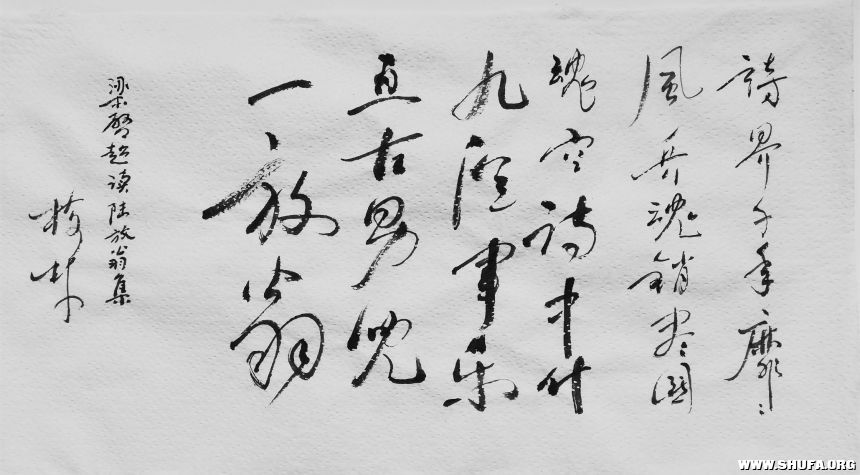 詩界千年靡〻
風兵魂銷尽國
魂空詩中什
九從軍乐
亘古男兒
一放翁
梁啓超读陆放翁集
林
WWW.SHUFA.ORG